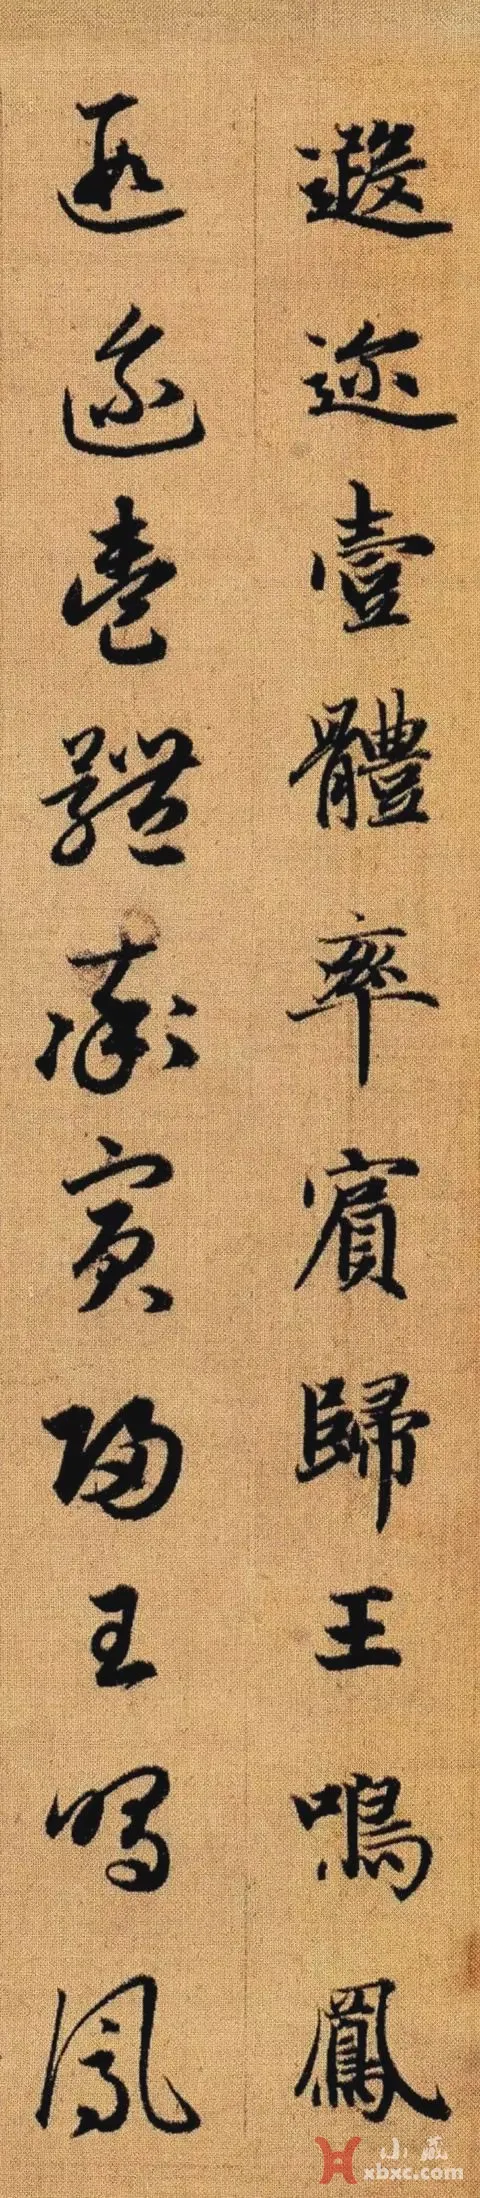 遐迩壹體率賓歸王鳴鳳
遐迩壹體率賓歸王鳴鳳
小藏
xbxc.com